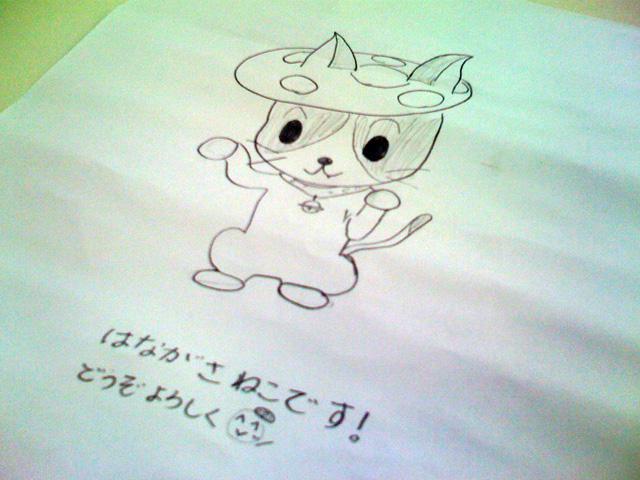 はながさねこです!
どうぞよろしく